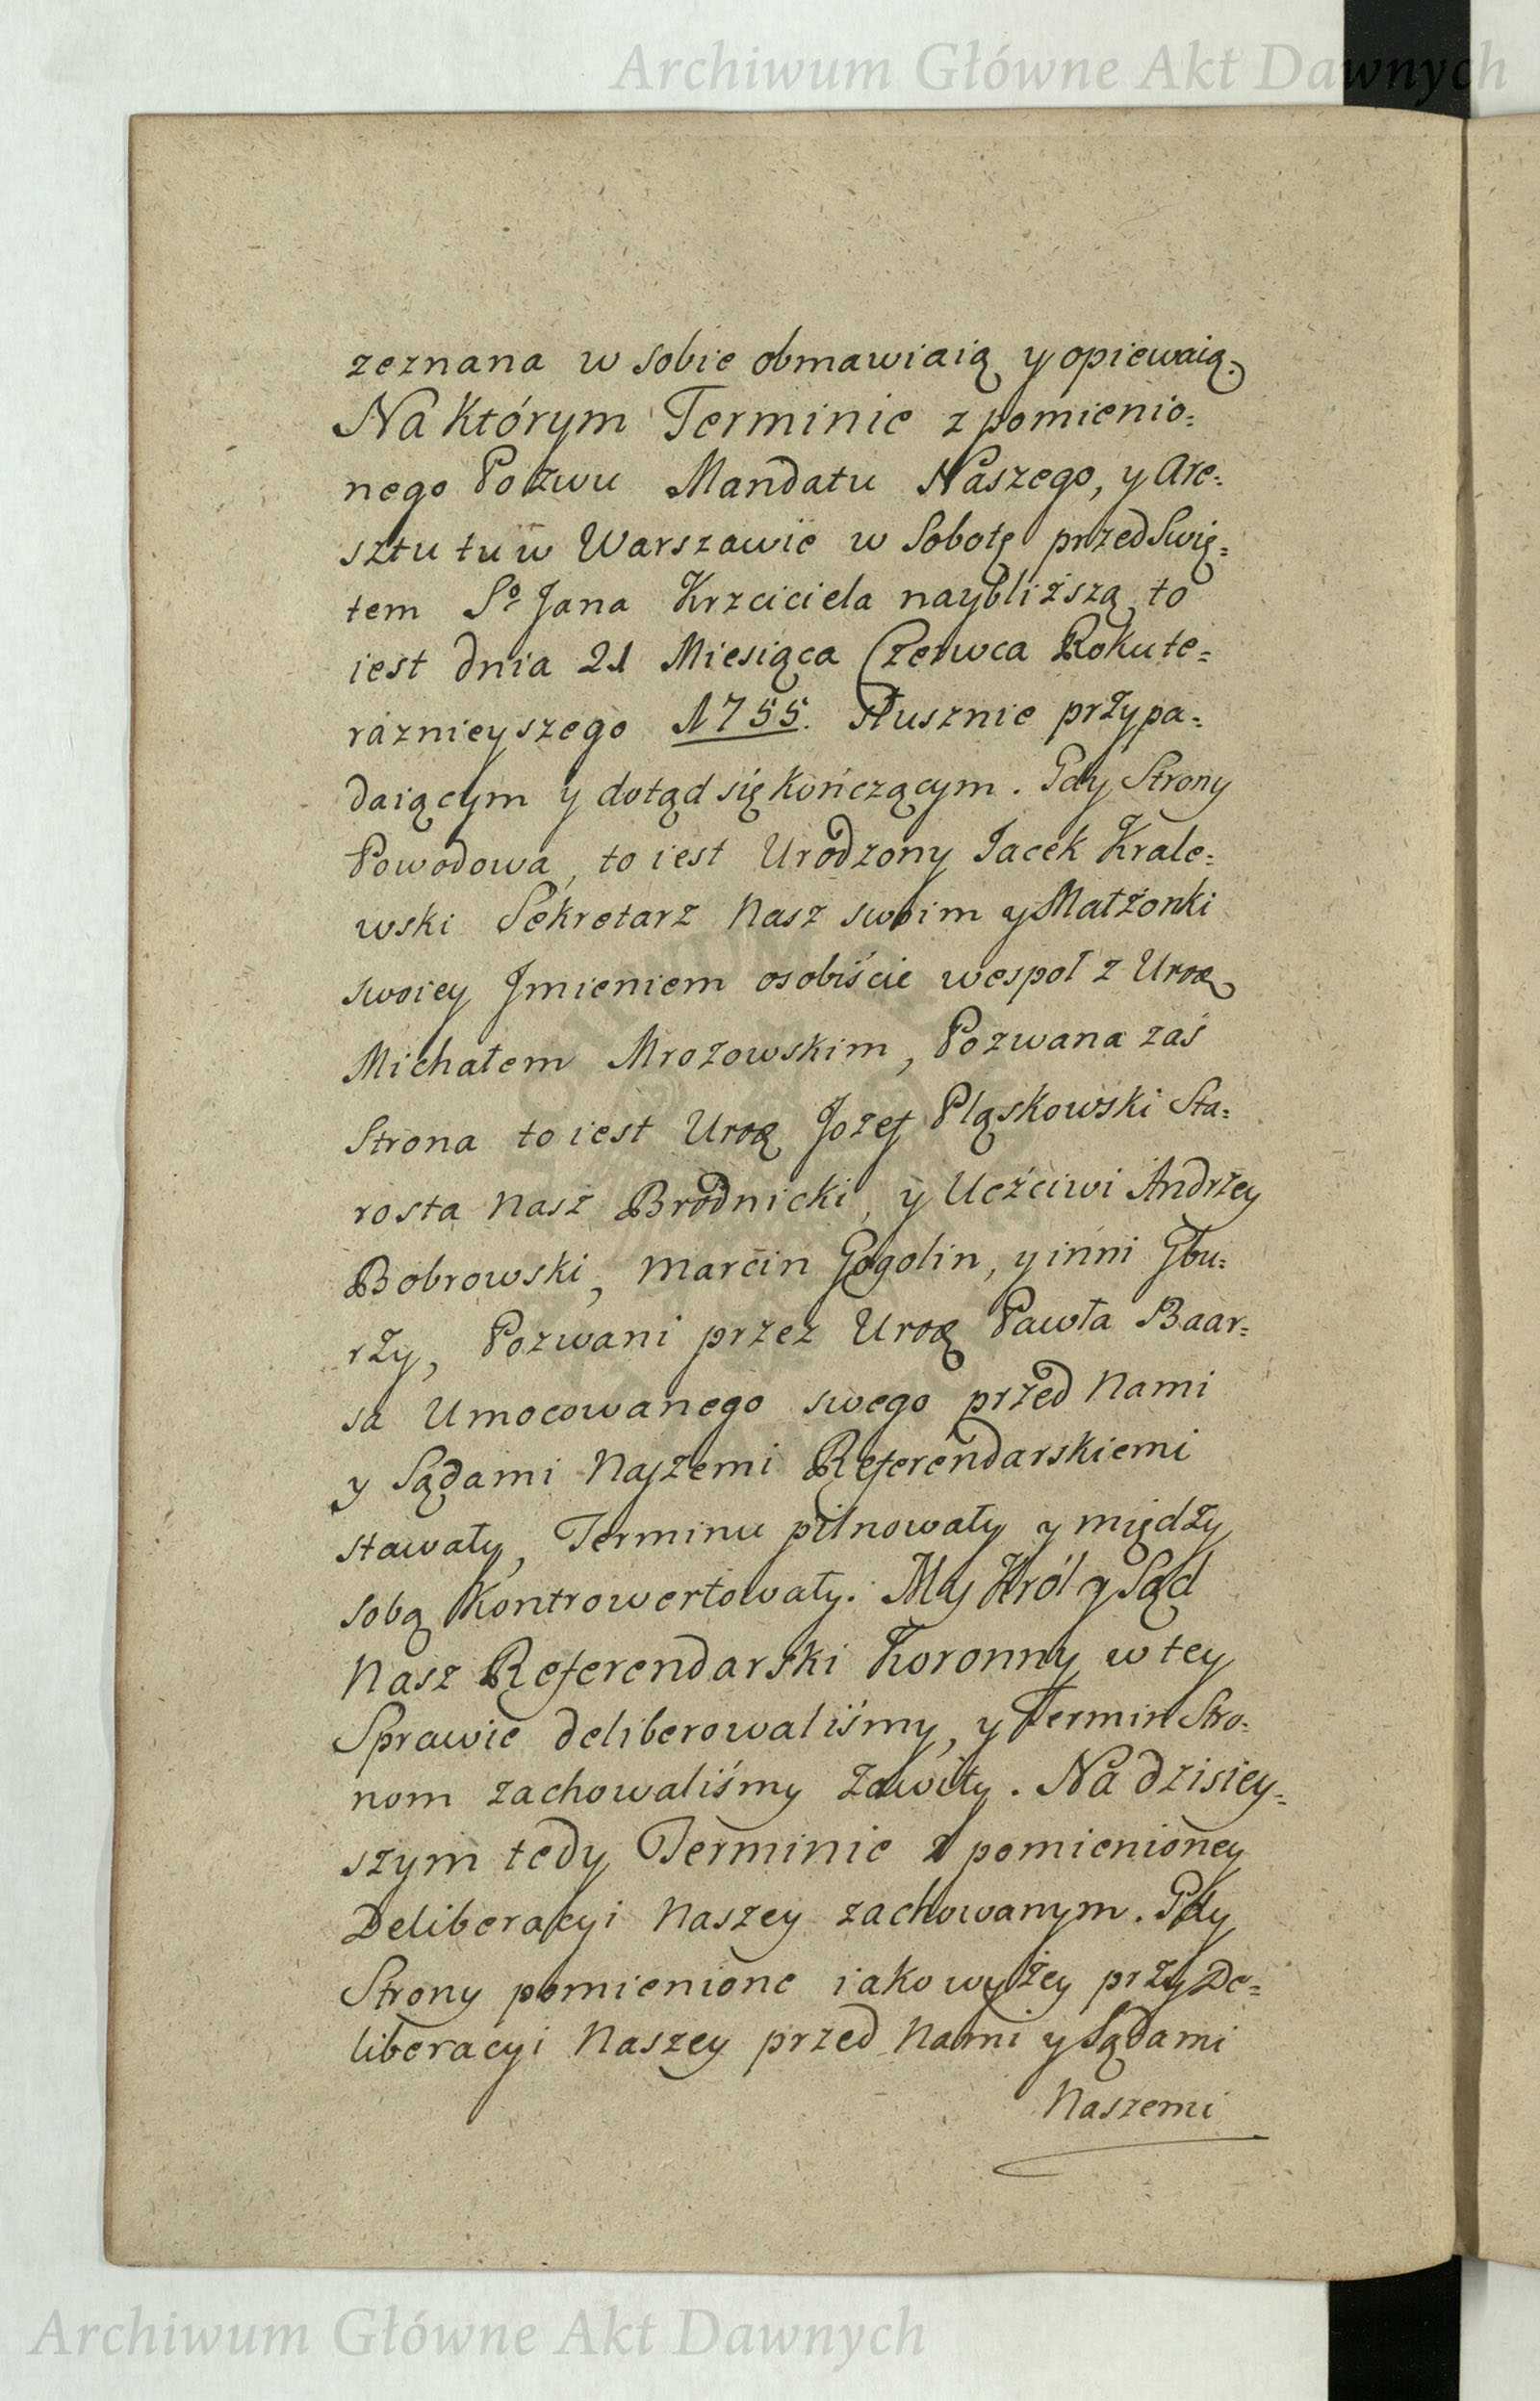 Archiwum Główne Akt Dawnych
zeznana w sobie obmawiaią y opiewaią.
Na którym Terminie z pomienio=
nego Pozwu Mandatu Naszego, y Are=
sztu tu w Warszawie w Sobotę przed Swię=
tem So Jana Krzciciela naybliższą to
iest dnia 21 Miesiąca Czerwca Roku te=
raznieyszego 1755. Słusznie przypa=
daiącym y dotąd się kończącym. Gdy Strony
Powodowa, to iest Urodzony Jacek Krale=
wski Sekretarz Nasz swoim y Małżonki
swoiey Jmieniem osobiście wespoł z Urod
Michałem Mrozowskim, Pozwana zaś
Strona to iest Urod Jozef Pląskowski Sta=
rosta Nasz Brodnicki, y Uczciwi Andrzey
Bobrowski, Marcin Gogolin, y inni Gbu=
rzy, Pozwani przez Urod Pawła Baar=
sa Umocowanego swego przed Nami
y Sądami Naszemi Referendarskiemi
stawały, Terminu pilnowały y między
sobą Kontrowertowały. My Król y Sąd
Nasz Referendarski Koronny w tey
Sprawie deliberowaliśmy, y Termin Stro=
nom zachowaliśmy Zawity. Na dzisiey=
szym tedy Terminie z pomienioney
Deliberacyi Naszey zachowanym. Gdy
Strony pomienione iako wyżey przy De=
liberacyi Naszey przed Nami y Sądami
Naszemi
Archiwum Główne Akt Dawnych